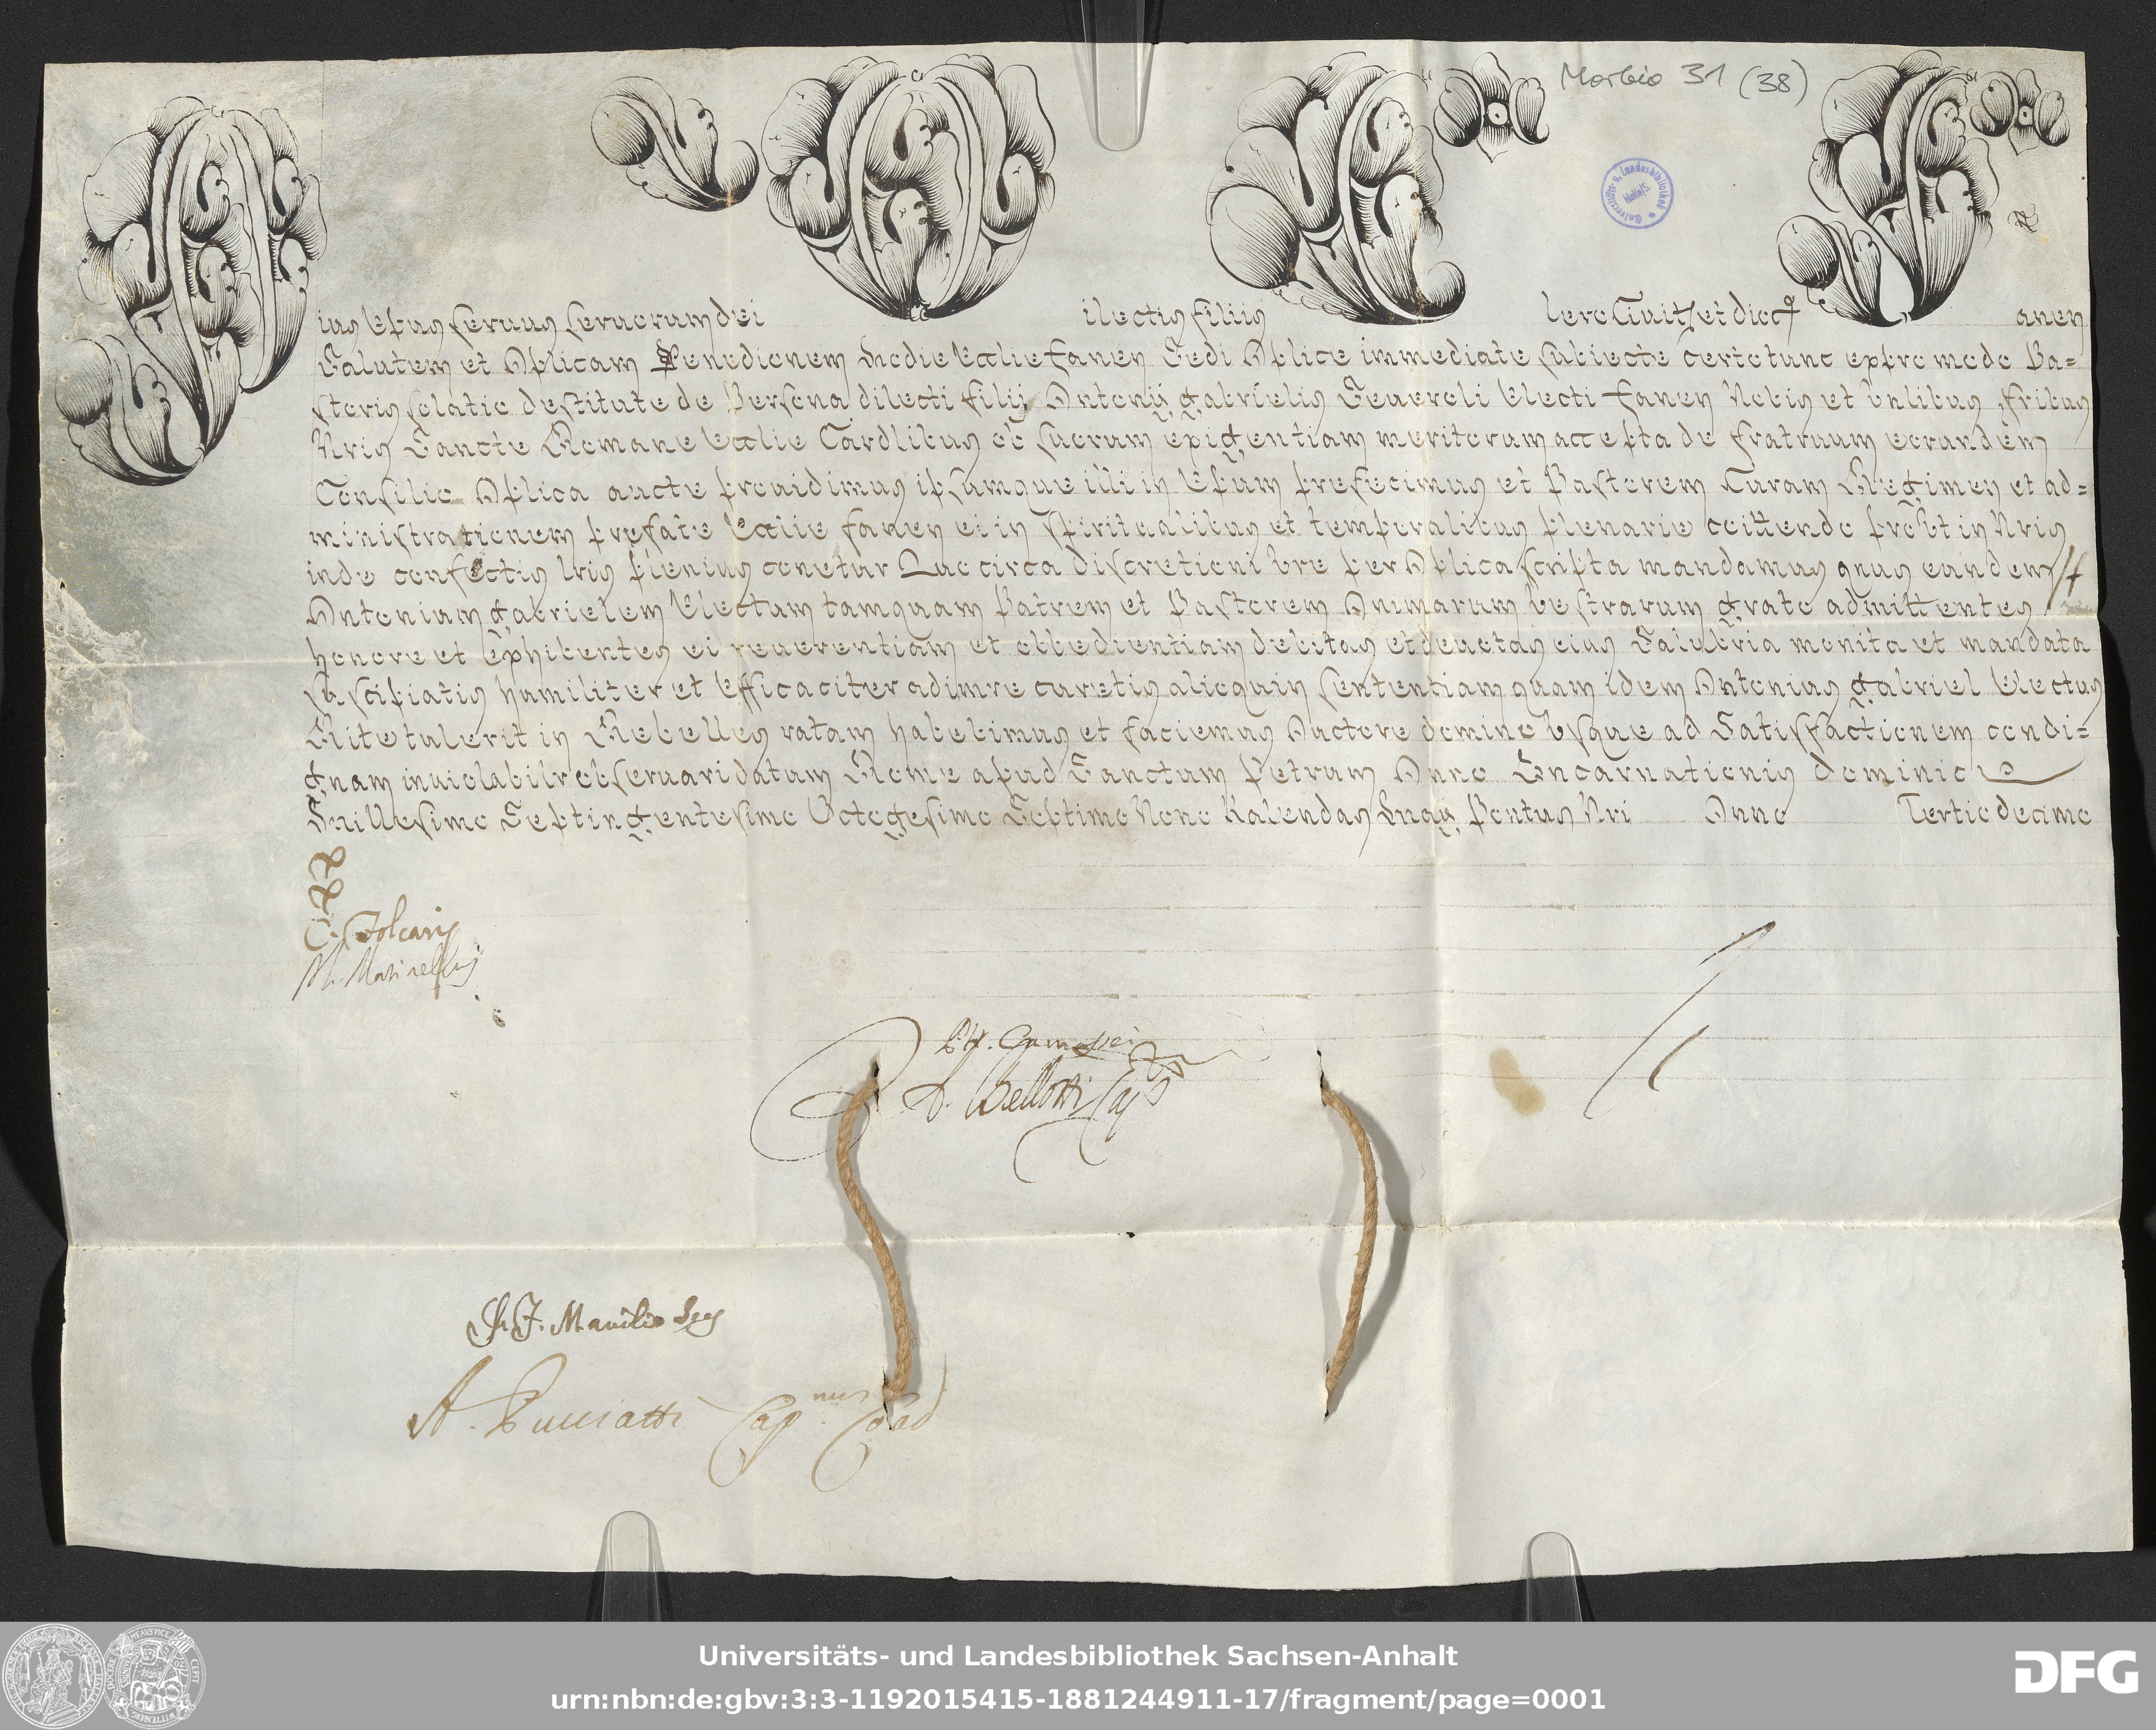 Morbio 31 (38)
Universitäts- u. Landesbibliothek Halle/S.
Pius Epus servus servorum dei Dilectis filiis Clero Civitis et dioc Fanen
Salutem et Aplicam Benedionem Hodie Ecclie fanen Sedi Aplice immediate subiecte certo tunc expresso modo Pa=
storis solatio destitute de Persona dilecti filij Antonij gabrielis Severoli Electi fanen Nobis et Venlibus fribus
Nris Sancte Romane Ecclie Cardlibus ob suorum exigentiam meritorum accepta de fratruum eorundem
Consilio Aplica aucte providimus ipsumque illi in Epum prefecimus et Pastorem Curam Regimen et ad=
ministrationem prefate Ecclie fanen ei in spiritualibus et temporalibus plenarie coittendo prout in Nris
inde confectis lris plenius conetur Quocirca discretioni vre per Aplica scripta mandamus qnus eundem
Antonium gabrielem Electum tamquam Patrem et Pastorem Animarum vestrarum grato admittentes
honore et Exhibentes ei reverentiam et obbedientiam debitas et devotas eius Salubria monita et mandata
suscipiatis humiliter et Efficaciter adimre curetis alioquin sententiam quam idem Antonius gabriel Electus
Rite tulerit in Rebelles ratam habebimus et faciemus Auctore domino Usque ad Satisfactionem condi=
gnam inviolabilr observari datum Rome apud Sanctum Petrum Anno Incarnationis dominice
Millesimo Septingentesimo Octogesimo Septimo Nono Kalendas Maij Pontus Nri Anno Tertiodecimo
D. Bellotti
A. Pucciatti Cap.nus
Universitäts- und Landesbibliothek Sachsen-Anhalt
urn:nbn:de:gbv:3:3-1192015415-1881244911-17/fragment/page=0001
DFG